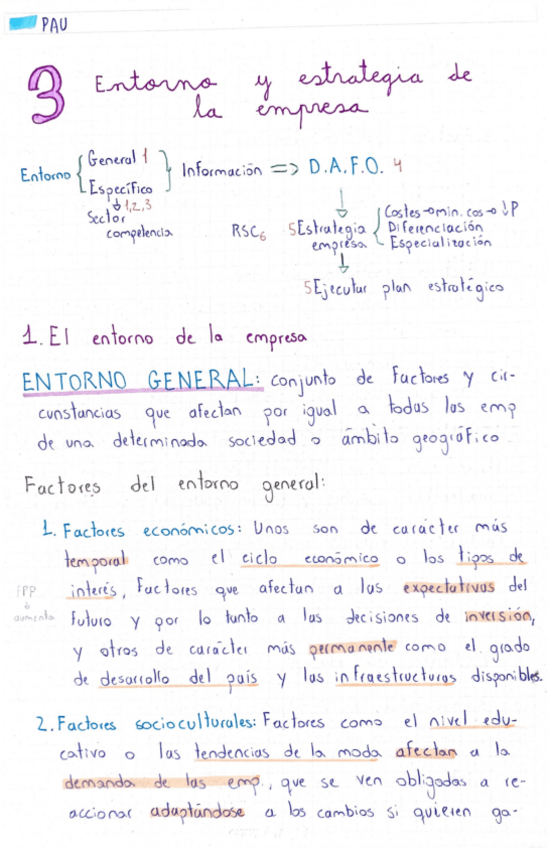 PAU
3 Entorno y estrategia de
la empresa
Entorno { General 1 } Información => D.A.F.O. 4
Específico
↓ 1,2,3
Sector
competencia
RSC6 5Estrategia empresa { Costes→min. cos→↓P
Diferenciación
Especialización
5Ejecutar plan estratégico
1. El entorno de la empresa
ENTORNO GENERAL: conjunto de factores y cir-
cunstancias que afectan por igual a todas las emp
de una determinada sociedad o ámbito geográfico
Factores del entorno general:
1. Factores económicos: Unos son de carácter más
temporal como el ciclo económico o los tipos de
interés, factores que afectan a las expectativas del
futuro y por lo tanto a las decisiones de inversión,
y otros de carácter más permanente como el grado
de desarrollo del país y las infraestructuras disponibles.
↓
aumenta
2. Factores socioculturales: Factores como el nivel edu-
cativo o las tendencias de la moda afectan a la
demanda de las emp., que se ven obligadas a re-
accionar adaptándose a los cambios si quieren ga-